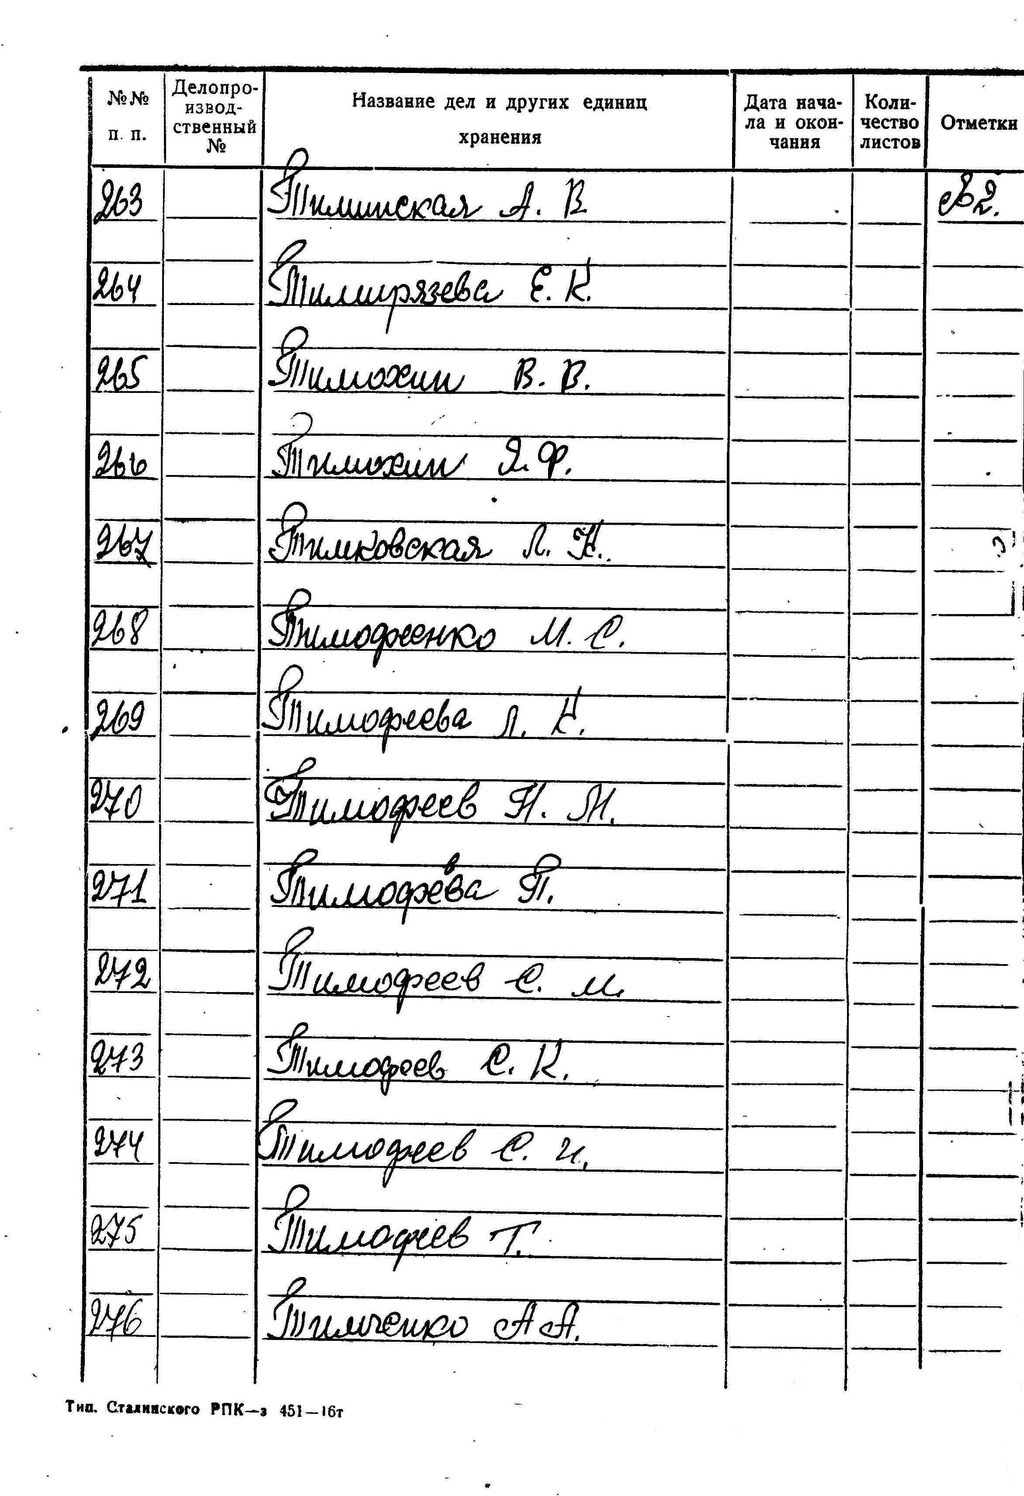 №№ п. п. Делопроизводственный № Название дел и других единиц хранения Дата начала и окончания Количество листов Отметки
263 Тиминская А. В. №2.
264 Тимирязева Е. К.
265 Тимохин В. В.
266 Тимохин Я. Ф.
267 Тимковская Л. Н.
268 Тимофеенко М. С.
269 Тимофеева Л. К.
270 Тимофеев Н. М.
271 Тимофеева П.
272 Тимофеев С. М.
273 Тимофеев С. К.
274 Тимофеев С. И.
275 Тимофеев Т.
276 Тимченко А А.
Тип. Сталинского РПК—з 451—16т